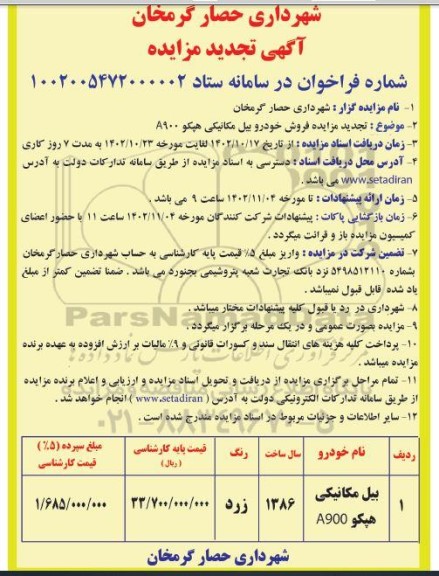 شهرداری حصار گرمخان
آگهی تجدید مزایده
شماره فراخوان در سامانه ستاد ۱۰۰۲۰۰۵۴۷۲۰۰۰۰۰۲
۱- نام مزایده گزار : شهرداری حصار گرمخان
۲- موضوع : تجدید مزایده فروش خودرو بیل مکانیکی هپکو A۹۰۰
۳- زمان دریافت اسناد مزایده : از تاریخ ۱۴۰۲/۱۰/۱۷ لغایت مورخه ۱۴۰۲/۱۰/۲۳ به مدت ۷ روز کاری
۴- آدرس محل دریافت اسناد : دسترسی به اسناد مزایده از طریق سامانه تدارکات دولت به آدرس
www.setadiran می باشد .
۵- زمان ارائه پیشنهادات : تا مورخه ۱۴۰۲/۱۱/۰۴ ساعت ۹ می باشد .
۶- زمان بازگشایی پاکات : پیشنهادات شرکت کنندگان مورخه ۱۴۰۲/۱۱/۰۴ ساعت ۱۱ با حضور اعضای
کمیسیون مزایده باز و قرائت میگردد .
۷- تضمین شرکت در مزایده : واریز مبلغ ۵٪ قیمت پایه کارشناسی به حساب شهرداری حصارگرمخان
بشماره ۵۴۹۸۵۱۲۱۱۰ نزد بانک تجارت شعبه پتروشیمی بجنورد می باشد . ضمنا تضمین کمتر از مبلغ
یاد شده قابل قبول نمیباشد .
۸- شهرداری در رد یا قبول کلیه پیشنهادات مختار میباشد .
۹- مزایده بصورت عمومی و در یک مرحله برگزار میگردد .
۱۰- پرداخت کلیه هزینه های انتقال سند و کسورات قانونی و ۹٪ مالیات بر ارزش افزوده به عهده برنده
مزایده میباشد .
۱۱- تمام مراحل برگزاری مزایده از دریافت و تحویل اسناد مزایده و ارزیابی و اعلام برنده مزایده
از طریق سامانه تدارکات الکترونیکی دولت به آدرس ( www.setadiran ) انجام خواهد شد .
۱۲- سایر اطلاعات و جزئیات مربوط در اسناد مزایده مندرج شده است .
ردیف نام خودرو سال ساخت رنگ قیمت پایه کارشناسی ( ریال ) مبلغ سپرده (۵٪ ) قیمت کارشناسی
۱ بیل مکانیکی هپکو A900 ۱۳۸۶ زرد ۳۳/۷۰۰/۰۰۰/۰۰۰ ۱/۶۸۵/۰۰۰/۰۰۰
شهرداری حصار گرمخان
ParsNamadData